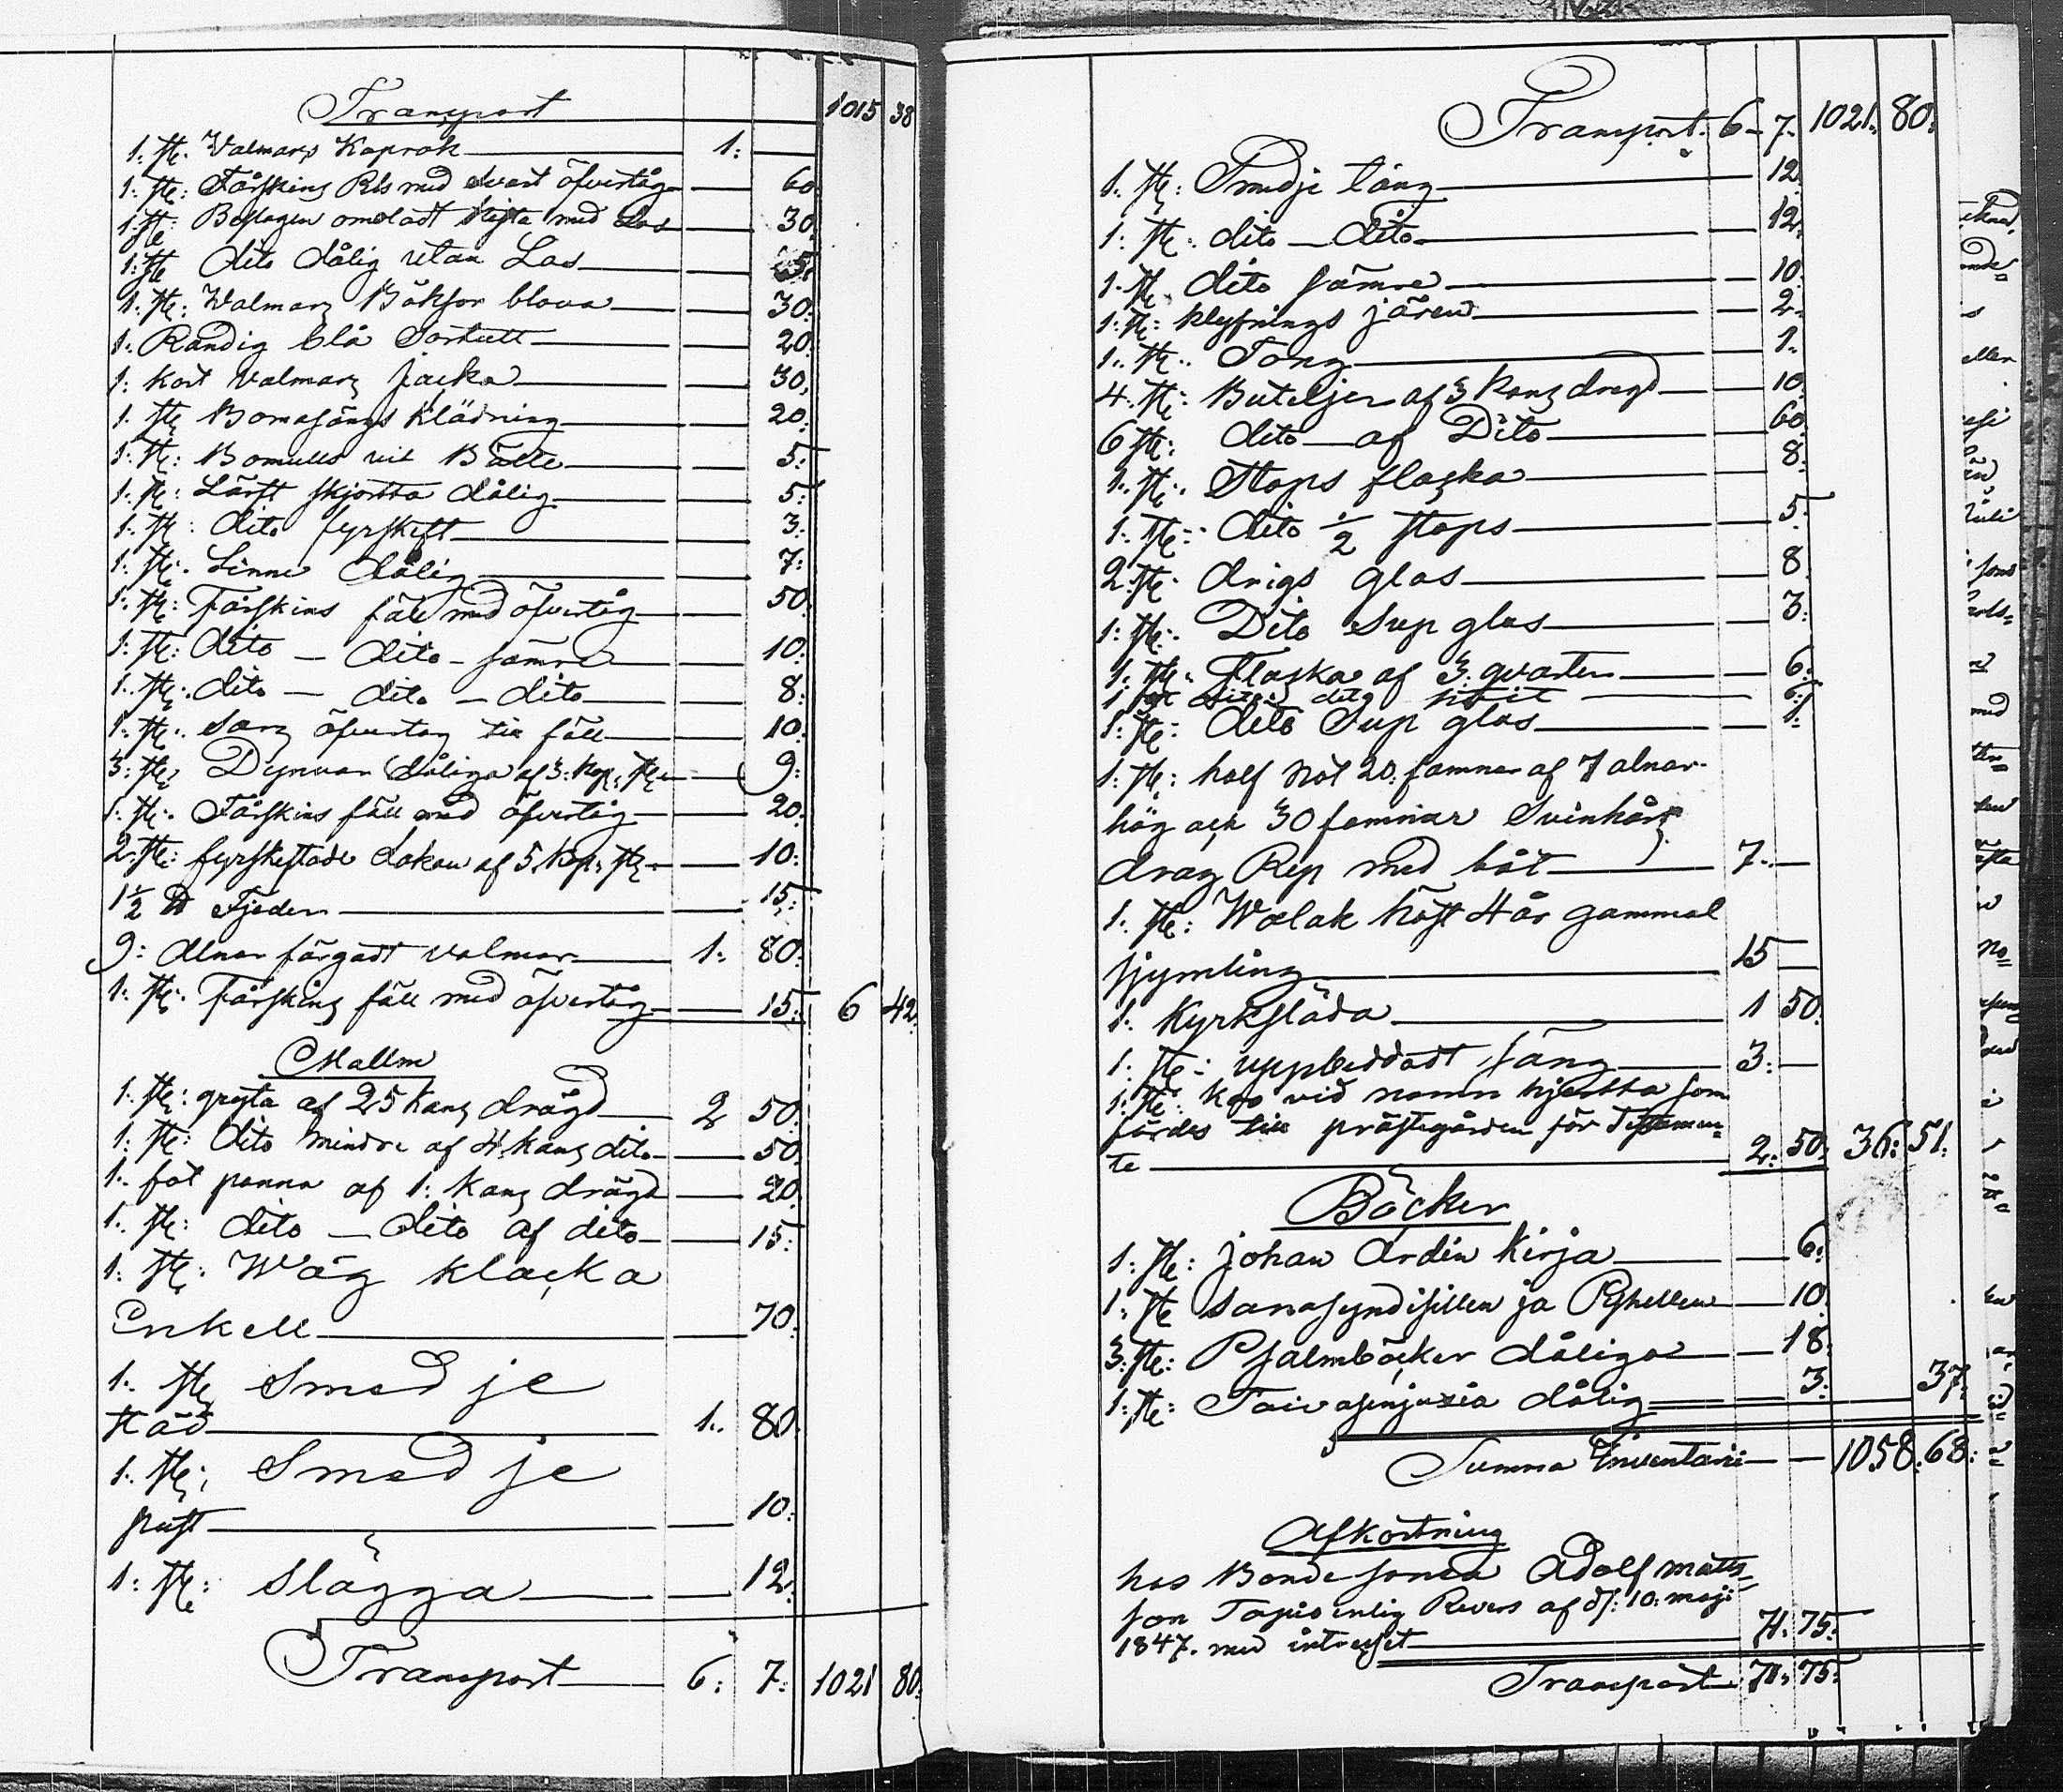 Transport 1015 38
1. st: Valmars Kaprok 1:
1. st: Fårskins Rb med svart öfvertåg 60
1. st: Beslagen omaladt kista med Las 30
1: st dito dålig utan Las 5.
1. st: Walmars Böksor blåva 30.
1. Randig blå Sortutt 20.
1: Kort Valmars jacka 30.
1. st Bomasångs Klädning 20.
1. st: Bomulls vit Bälte 5:
1. st: Lärft skjorta dålig 5:
1. st: dito fyrskeft 3.
1. st. Linne dålig 7:
1. st: Fårskins fäll med öfvertåg 50
1. st: dito — dito — sämre 10:
1. st: dito — dito — dito 8:
1. st: Sarz öfvertag till fäll 10:
3: st: Dynvar dåliga af 3: kop: st: 9:
1. st. Fårskins fäll med öfvertåg 20.
2. st: fyrskeftade Lakan af 5. kop: st: 10:
1½ ℔ Fjeder 15:
9: Alnar färgadt valmar 1: 80:
1. st. Fårskins fäll med öfvertåg 15: 6 42.
Mallm
1. st: gryta af 25 Kans drägd 2 50.
1: st: dito mindre af 4. kans dito 50
1. fot panna af 1: Kans drägd 20.
1. st: dito — dito af dito 15:
1: st: Wäg klacka
Enkell 70.
1. st Smedje
städ 1. 80.
1. st: Smedje
pust 10.
1. st: Slägga 12.
Transport 6: 7: 1021 80.
Transport. 6 7. 1021. 80.
1. st: Smedje tång 12.
1. st: dito — dito 12.
1. st. dito sämre 10.
1: st: klyfnings jären 2.
1. st: Tong 1.
4. st: Buteljer af 3 Kans dregd 10.
6 st: dito af Dito 60.
1. st: Stops flaska 8.
1. st: dito ½ stops 5.
2. st. drigs glas 8
1. st: Dito Sup glas 3.
1. st: Flaska af 3. qvarter 6.
1 st dito dito hvit 6.
1. st: dito Sup glas 1.
1. st: half Nöt 20. famnar af 7 alnar
hög ack 30 famnar Svinhårs
drag Rep med båt 7.
1. st: Walak häst 4 år gammal
skymling 15
1. Kyrksläda 1 50.
1. st: uppbeddadt säng 3:
1. st: Ko vid namn hjertta som
fördes till prästegården för Testamen=
te 2. 50. 36: 51.
Böcker
1. st: johan Ardin kirja 6.
1. st sanasyndisillen ja Ryhellen 10.
3. st: Psalmböcker dåliga 18.
1. st: Taivasenjuxia dålig 3. 37.
Summa Inventarii 1058. 68:
Afkortning
hos Bondesonen Adolf matts=
son Tapio enlig Revers af d: 10: maji
1847. med intresset 71. 75:
Transport 71. 75: